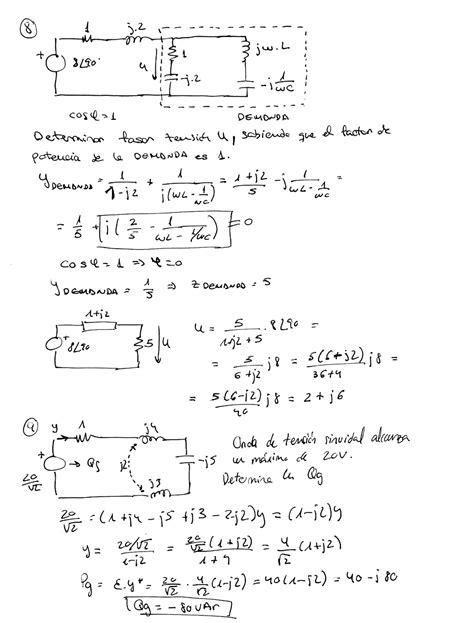 8
1 j.2
+ 8∠90° u 1 -j.2 jω.L -j 1/ωC
cosφ=1 DEMANDA
Determinar fasor tensión U, sabiendo que el factor de
potencia de la DEMANDA es 1.
Y DEMANDA = 1/(1-j2) + 1/(j(ωL-1/ωC)) = (1+j2)/5 - j 1/(ωL-1/ωC) =
= 1/5 + j(2/5 - 1/(ωL-1/ωC)) = 0
cosφ=1 ⇒ φ=0
Y DEMANDA = 1/5 ⇒ Z DEMANDA = 5
1+j2
+ 8∠90 5 u
u = 5/(1+j2+5) · 8∠90 =
= 5/(6+j2) j8 = 5(6+j2)/(36+4) j8 =
= 5(6-j2)/40 j8 = 2+j6
9 y 1 j4
+ 20/√2 → Qg j2 j3 -j5
Onda de tensión sinuidal alcanza
un máximo de 20V.
Determine la Qg
20/√2 = (1+j4-j5+j3-2j2)y = (1-j2)y
y = (20/√2)/(1-j2) = (20/√2 (1+j2))/(1+4) = 4/√2 (1+j2)
Pg = ε.y* = 20/√2 · 4/√2 (1-j2) = 40(1-j2) = 40-j80
Qg = -80 VAr